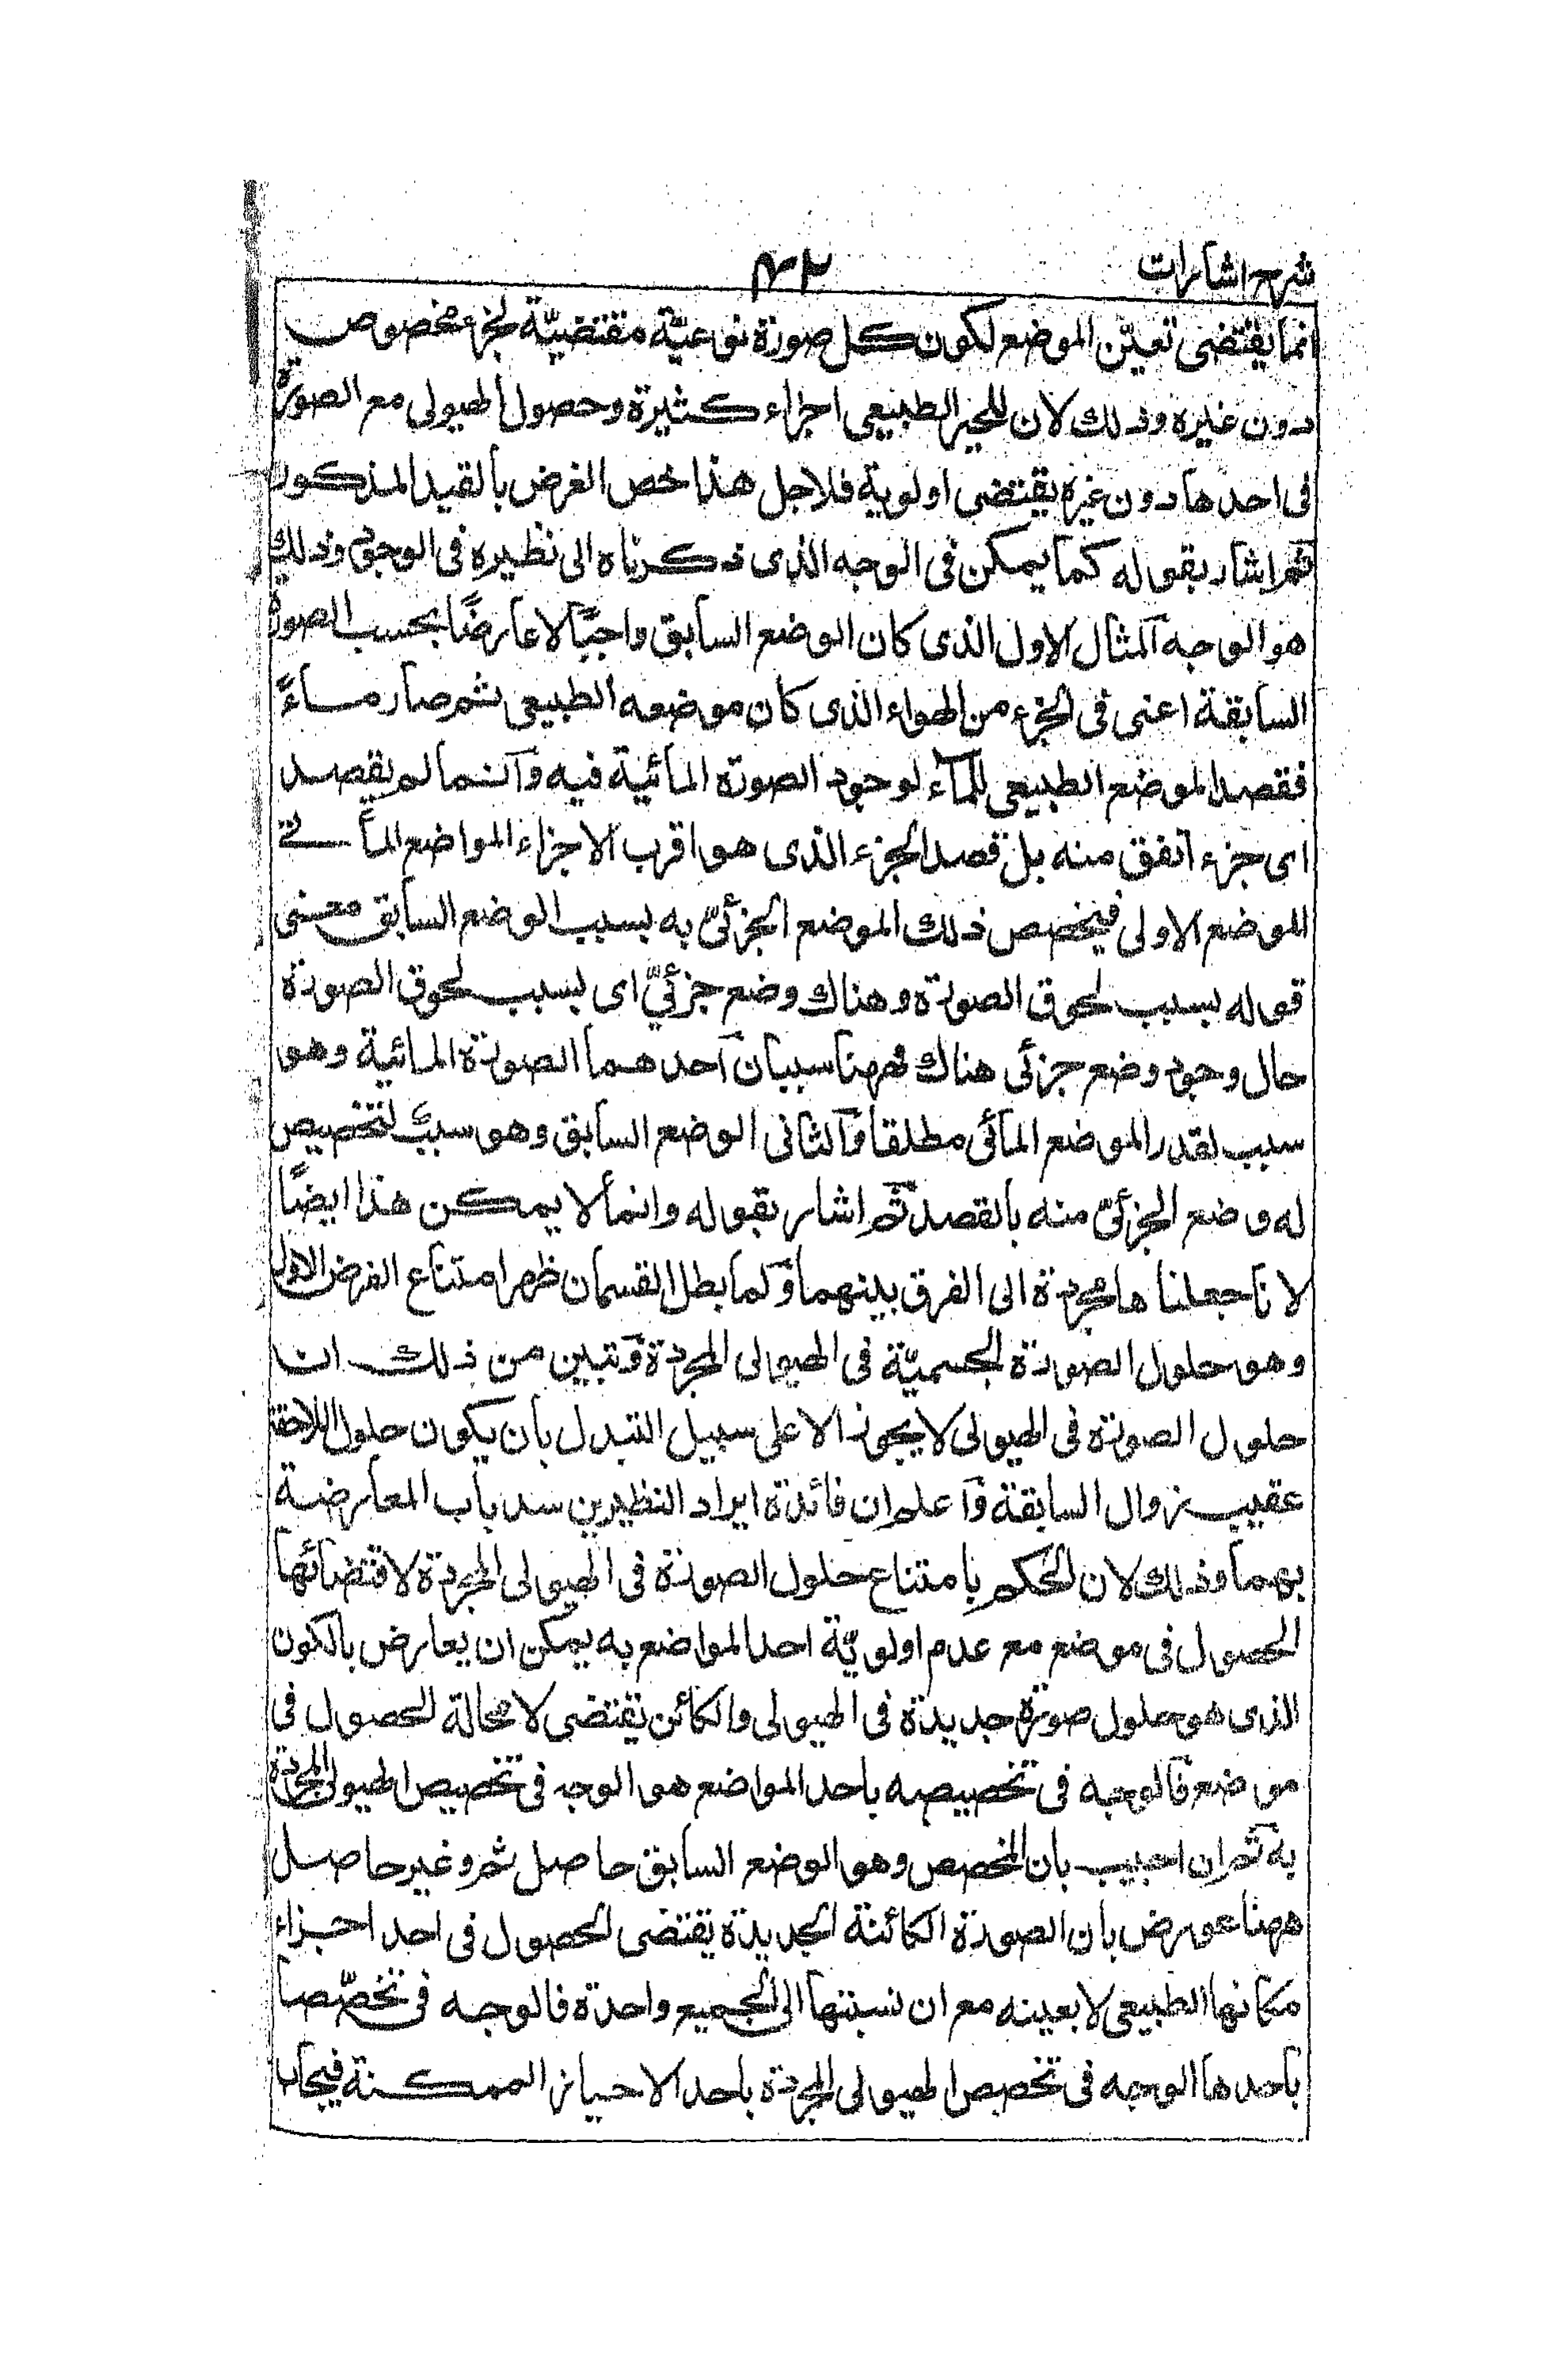 شرح اشارات
٤٢
انما يقتضى تعيّن الموضع لكون كل صورة نوعيّة مقتضيّة لجزء مخصوص
دون غيره وذلك لان للحيز الطبيعى اجزاء كثيرة وحصول الهيولى مع الصورة
فى احدها دون غيره يقتضى اولوية فلاجل هذا خص الغرض بالقيد المذكور
ثم اشار بقوله كما يمكن فى الوجه الذى ذكرناه الى نظيره فى الوجود وذلك
هو الوجه المثال الاول الذى كان الوضع السابق واجبًا لا عارضًا بحسب الصورة
السابقة اعنى فى الجزء من الهواء الذى كان موضعه الطبيعى ثم صار ماءً
فقصد الموضع الطبيعى للماء لوجود الصورة المائية فيه وانما لم يقصد
اى جزء اتفق منه بل قصد الجزء الذى هو اقرب الاجزاء المواضع المائى
الموضع الاولى فيخصص ذلك الموضع الجزئىّ به بسبب الوضع السابق معنى
قوله بسبب لحوق الصورة وهناك وضع جزئىّ اى بسبب لحوق الصورة
حال وجود وضع جزئى هناك فههنا سببان احدهما الصورة المائية وهو
سبب لقدر الموضع المائى مطلقا والثانى الوضع السابق وهو سبب لتخصيص
له وضع الجزئىّ منه بالقصد ثم اشار بقوله وانما لا يمكن هذا ايضًا
لانا جعلناها مجردة الى الفرق بينهما ولما بطل القسمان ظهر امتناع الفرض الاول
وهو حلول الصورة الجسميّة فى الهيولى المجردة وتبين من ذلك ان
حلول الصورة فى الهيولى لا يجوز الا على سبيل التبدل بان يكون حلول اللاحقة
عقيب زوال السابقة واعلم ان فائدة ايراد النظيرين سد باب المعارضة
بهما وذلك لان الحكم بامتناع حلول الصورة فى الهيولى المجردة لاقتضائها
الحصول فى موضع مع عدم اولويّة احد المواضع به يمكن ان يعارض بالكون
الذى هو حلول صورة جديدة فى الهيولى والكائن يقتضى لا محالة الحصول فى
موضع فالوجه فى تخصيصه باحد المواضع هو الوجه فى تخصيص الهيولى المجردة
به ثم ان اجيب بان المخصص وهو الوضع السابق حاصل ثم وغير حاصل
ههنا عورض بان الصورة الكائنة الجديدة يقتضى الحصول فى احد اجزاء
مكانها الطبيعى لا بعينه مع ان نسبتها الى الجميع واحدة فالوجه فى تخصّصها
باحدها الوجه فى تخصيص الهيولى المجردة باحد الاحياز الممكنة فيجاب